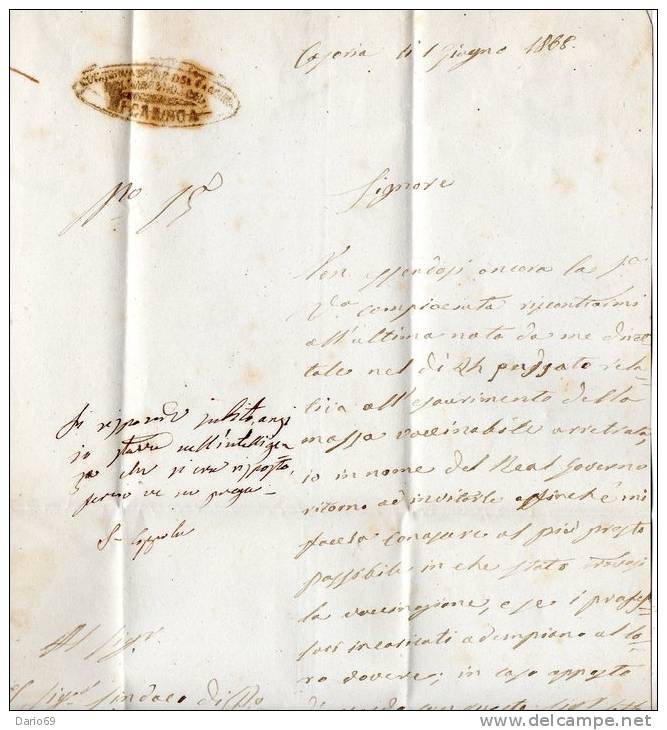 Casoria li 1 Giugno 1868.
No. 15
Signore
Non essendosi ancora la S.a
V.a compiaciuta riscontrarmi
all'ultima nota da me diret
tale nel dì 24 passato rela
tiva all'esaurimento della
massa vaccinabile arretrata,
io in nome del Real Governo
ritorno ad invitarla affinchè mi
faccia conoscere al più presto
possibile in che stato trovasi
la vaccinazione, e se i profes
sori incaricati adempiano al lo
ro dovere; in caso opposto
Si risponda subito, anzi
io stava nell'intelligen
za che si era risposto,
perciò ve ne prego
Coppola
Al Sig.r
Sindaco di
Dario69
www.delcampe.net